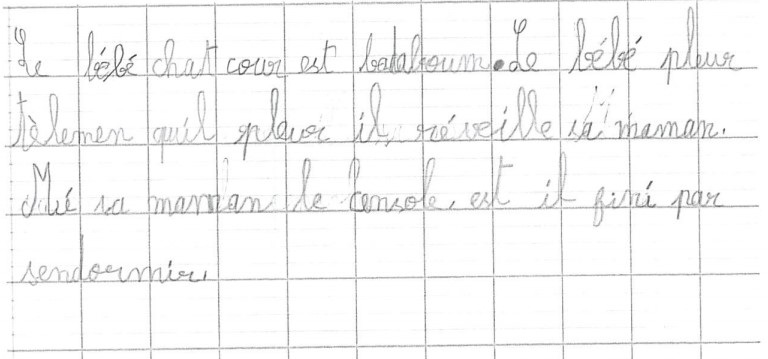 Le bébé chat cour est badaboum. Le bébé pleur
tèlemen quil pleur il réveille sa maman.
Mé sa maman le console, est il fini par
sendormir.